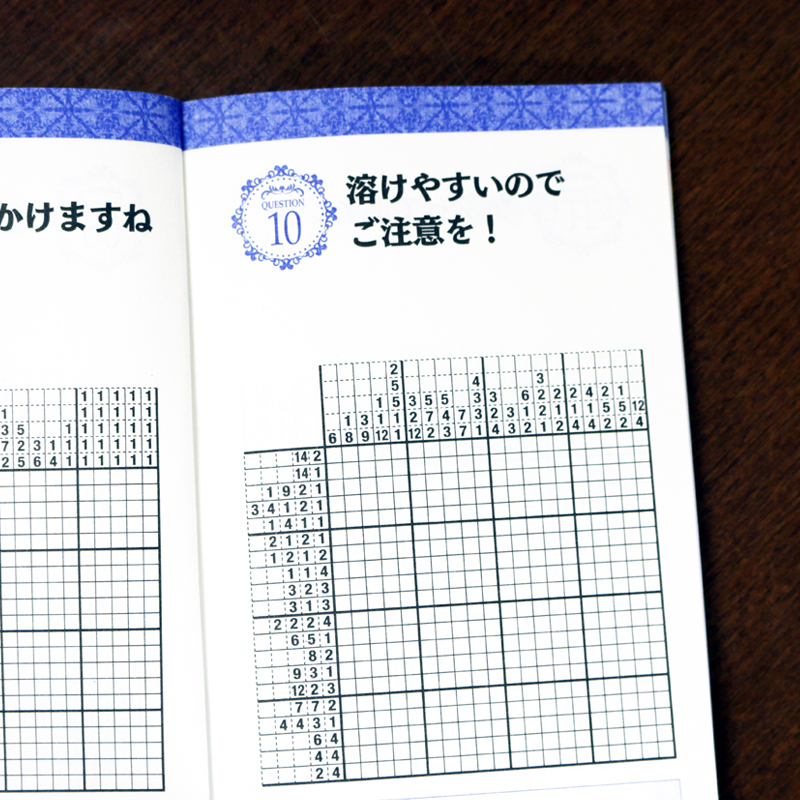 かけますね
1 1 1 1 1
1 1 1 1 1 1
3 5 1 1 1 1 1 1
7 2 3 1 1 1 1 1 1 1
2 5 6 4 1 1 1 1 1 1
QUESTION
10
溶けやすいので
ご注意を！
2
5 4 3
1 5 3 5 5 3 3 6 2 2 2 4 2 1
1 3 1 1 2 7 4 7 3 2 3 2 2 1 1 1 5 5 12
6 8 9 12 1 12 2 3 7 1 4 3 1 1 2 4 4 2 2 4
14 2
14 1
1 9 2 1
3 4 1 2 1
1 4 1 1
2 1 2 1
1 2 1 2
1 1 4
3 2 3
3 1 3
2 2 2 4
6 5 1
8 2
9 3 1
12 2 3
7 7 2
4 4 3 1
6 4
4 4
2 4